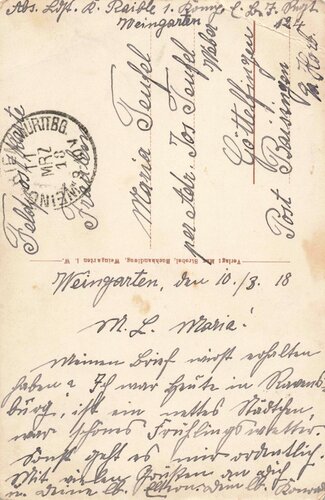 Abs. Ldst. K. Raible 1. Komp. E. B. I. Regt. 124
Weingarten
Feldpostkarte
WEINGARTEN WÜRTTBG.
11
MRZ
18
Maria Teufel
per Adr. Jos. Teufel
Weber
Göttelfingen
Post Baisingen
Verlag: Max Strobel, Buchhandlung, Weingarten i. W.
Weingarten, den 10./3. 18
M. L. Maria!
Meinen Brief wirst erhalten
haben? Ich war heute in Ravens-
burg, ist ein nettes Städtchen,
war schönes Frühlingswetter.
Sonst geht es mir ordentlich.
Mit vielen Grüßen an dich
u. deine lb. Eltern dein lb. Konrad